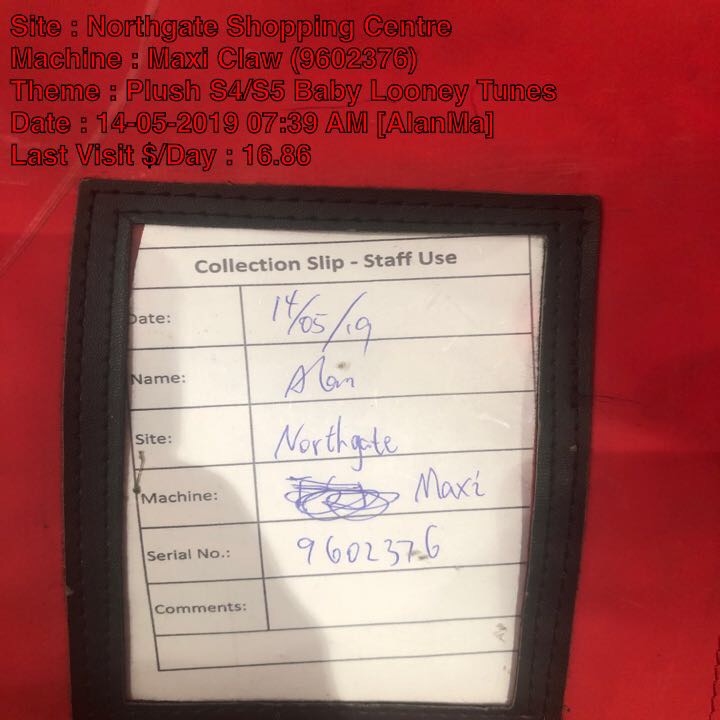 Site : Northgate Shopping Centre
Machine : Maxi Claw (9602376)
Theme : Plush S4/S5 Baby Looney Tunes
Date : 14-05-2019 07:39 AM [AlanMa]
Last Visit $/Day : 16.86
Collection Slip - Staff Use
Date: 14/05/19
Name: Alan
Site: Northgate
Machine: Maxi
Serial No.: 9602376
Comments: